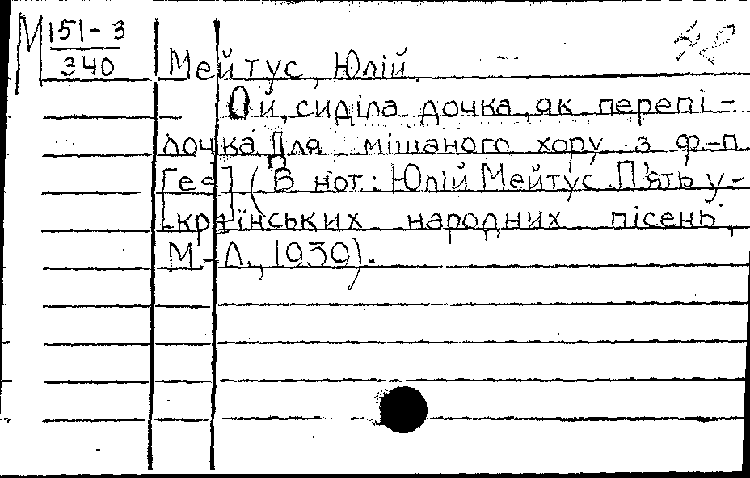 М 151-3
340
42
Мейтус, Юлій.
Ой, сиділа дочка, як перепі-
лочка. Для мішаного хору з ф-п.
[ее] (В нот.: Юлій Мейтус. П'ять у-
країнських народних пісень,
М.-Л., 1939).